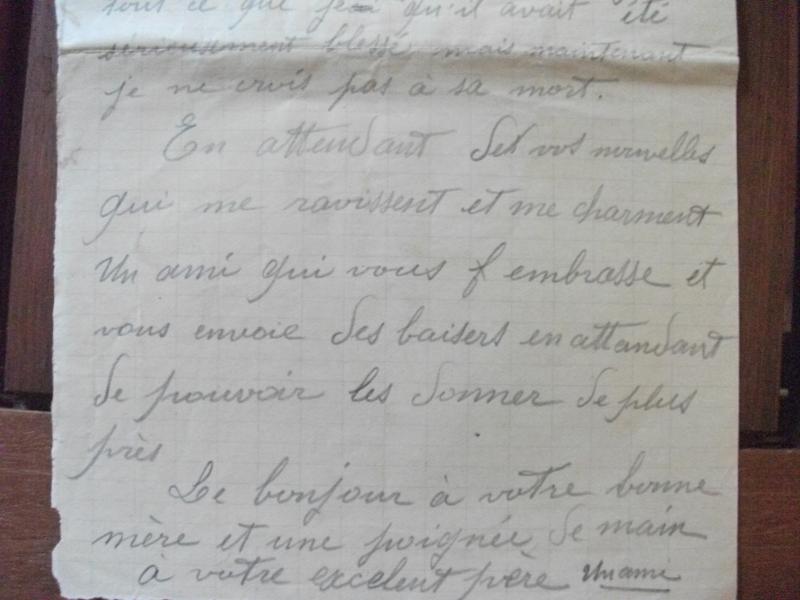 tout ce que je qu'il avait été
sérieusement blessé, mais maintenant
je ne crois pas à sa mort.
En attendant de vos nouvelles
qui me ravissent et me charment
Un ami qui vous f embrasse et
vous envoie des baisers en attandant
de pouvoir les donner de plus
près
Le bonjour à votre bonne
mère et une poignée de main
à votre excelent père Un ami